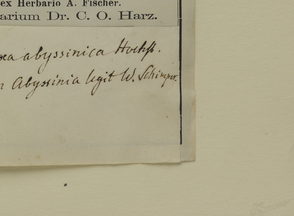 ex Herbario A. Fischer.
arium Dr. C. O. Harz.
abyssinica Hochst.
Abyssinia legit W. Schimper